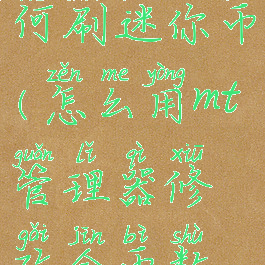 何刷迷你币
zěn me yòng
(怎么用mt
guǎn lǐ qì xiū
管理器修
gǎi jīn bì shù
改金币数